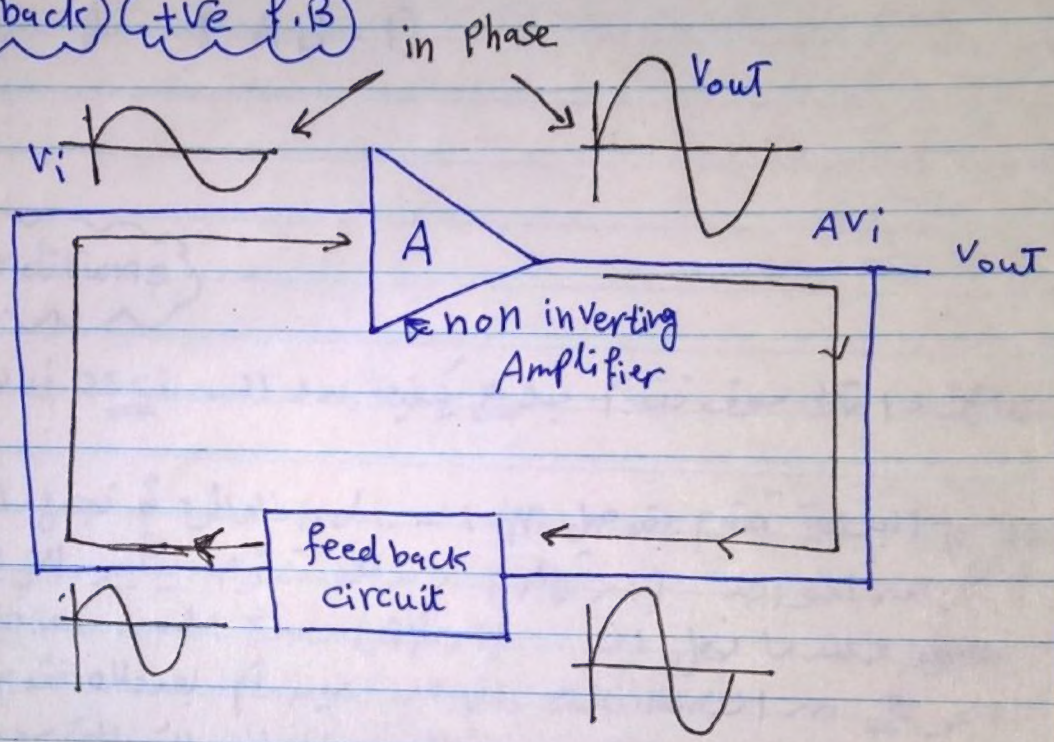 back) (+ve f.B)
in phase
Vout
Vi
A
AVi
Vout
non inverting
Amplifier
feedback
circuit